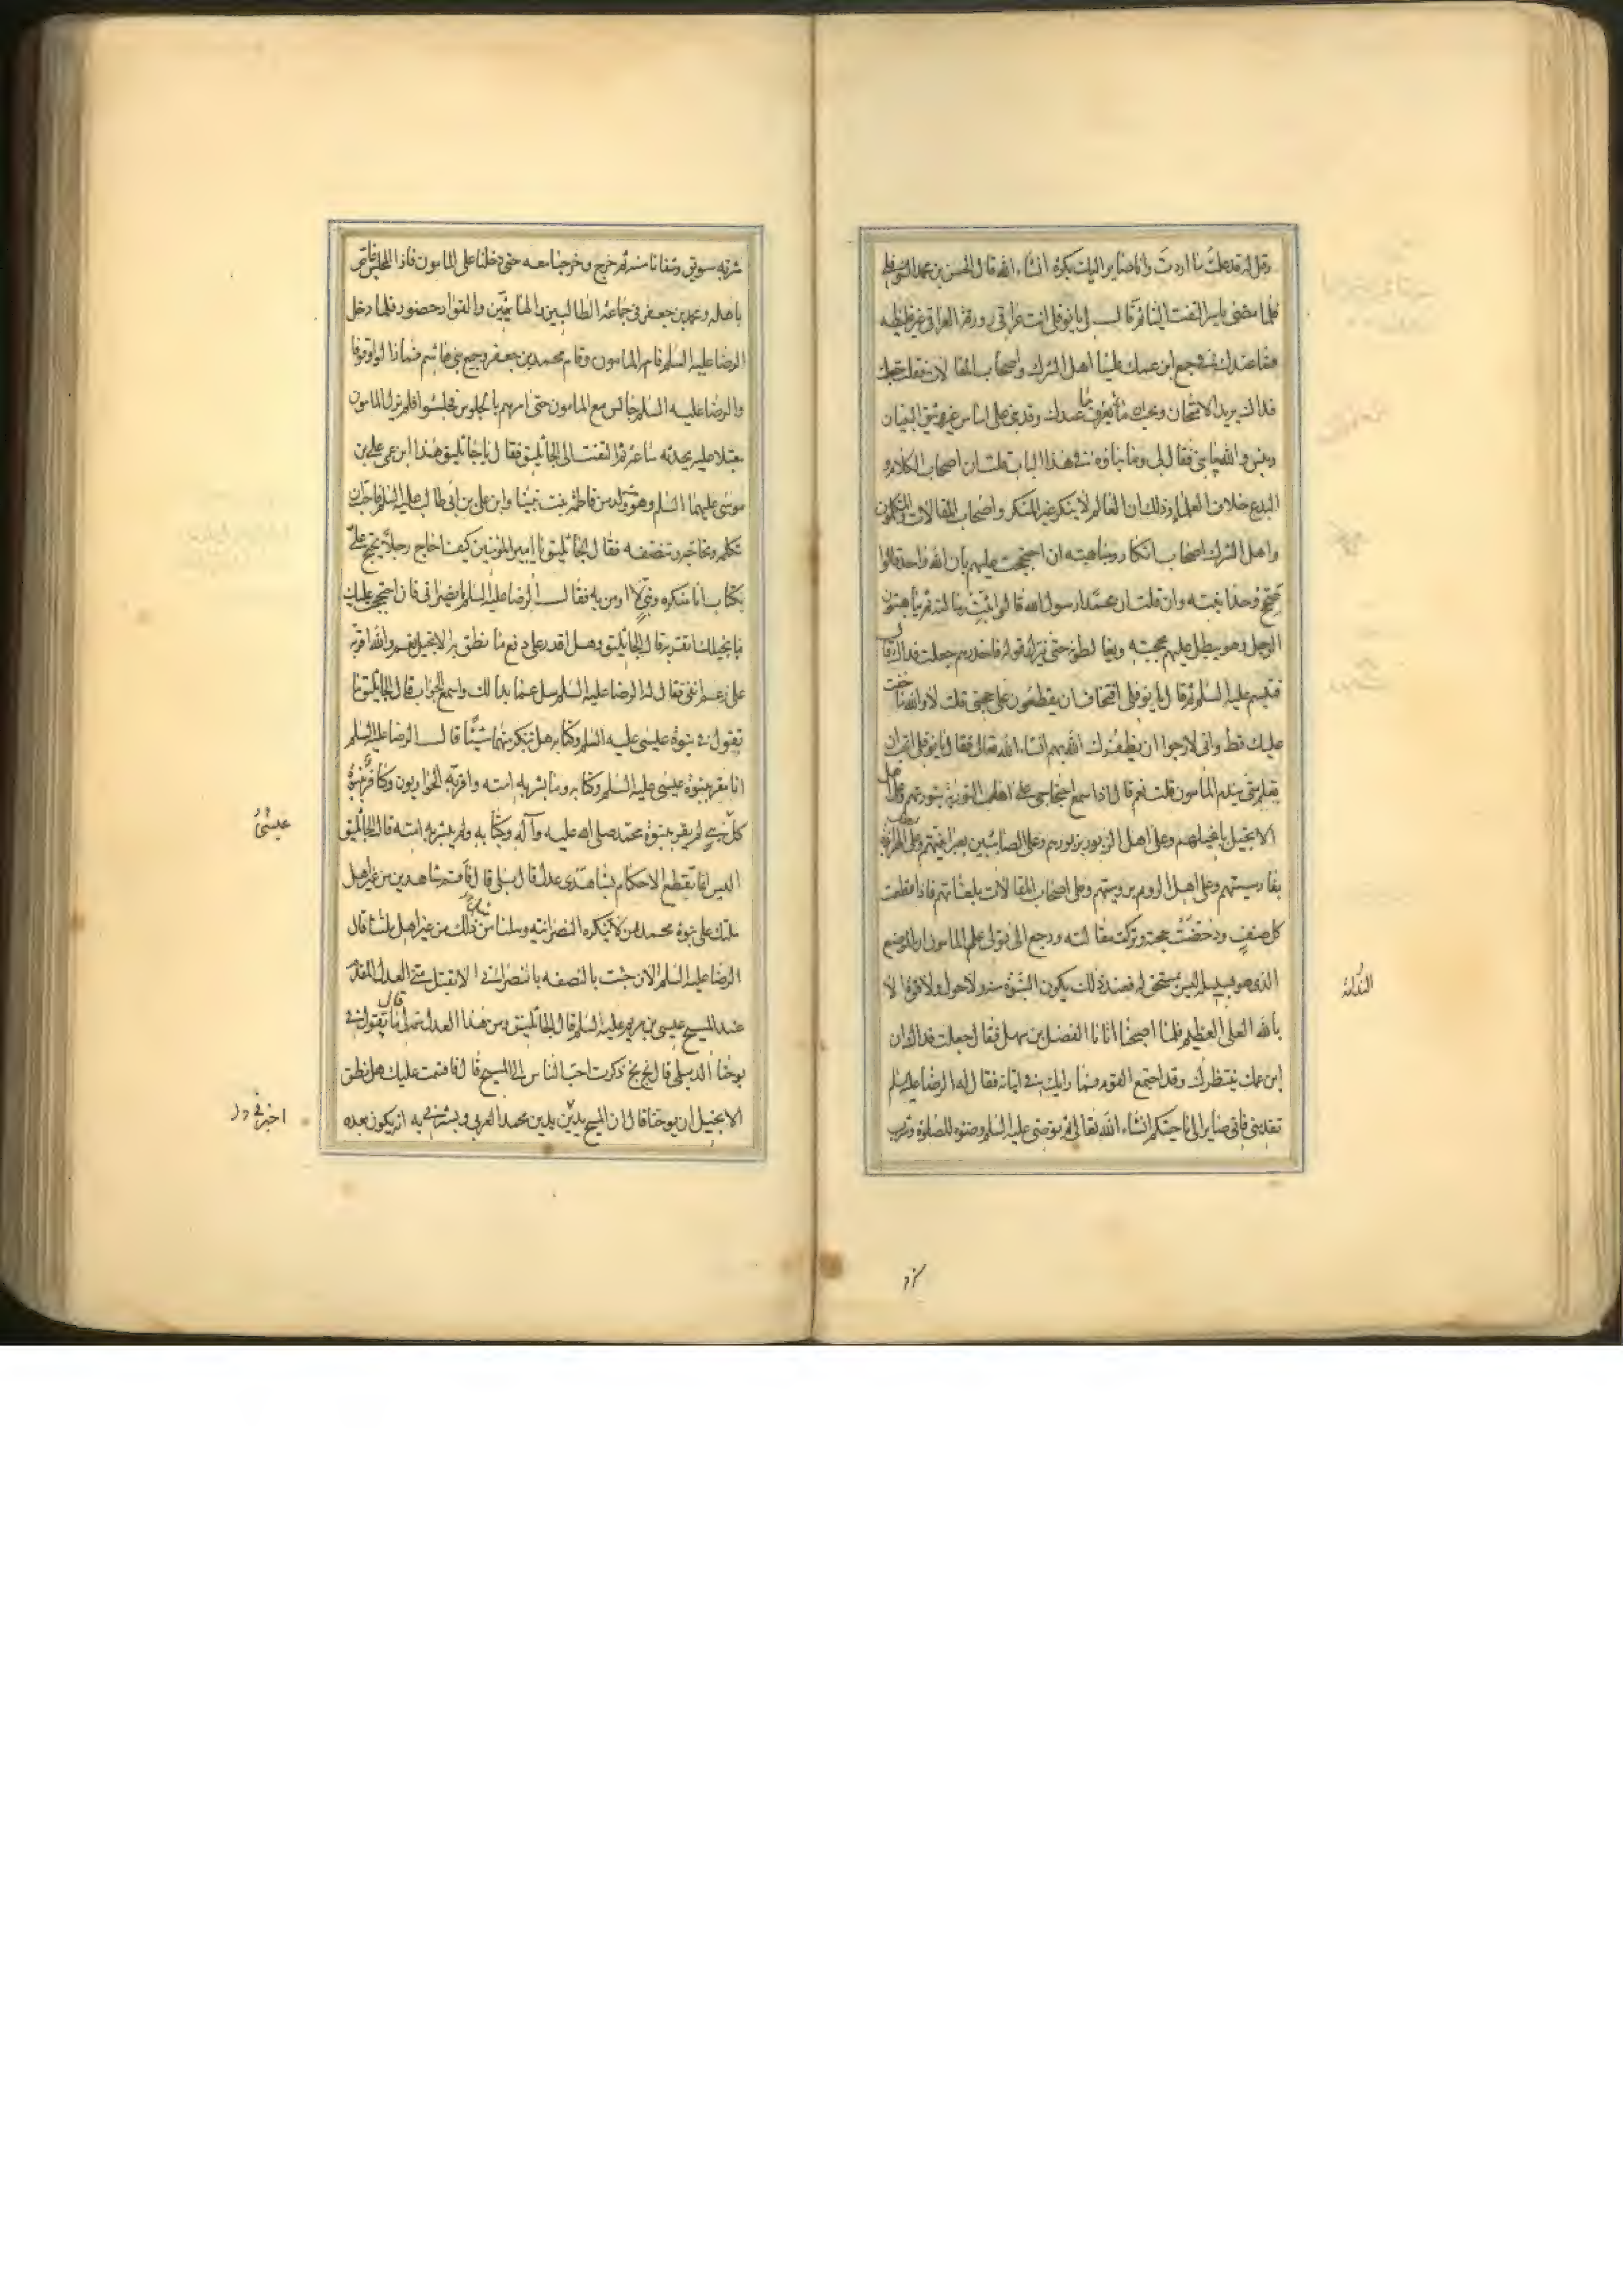 وقل له قد علمت ما اردت وانا صاير اليك بكرة انشاء الله قال الحسن بن محمد النوفلي
فلما مضى ياسر التفت الينا ثم قال لي يا نوفلي انت عراقي ورقة العراقي غير غليظه
فما عندك في جمع ابن عمك علينا اهل الشرك واصحاب المقالات فقلت جعلت
فداك يريد الامتحان ويحب ان يعرف ما عندك وقد بنى على اساس غير وثيق البنيان
وبئس والله ما بنى فقال لي وما بناؤه في هذا الباب قلت ان اصحاب الكلام و
البدع خلاف العلماء وذلك ان العالم لا ينكر غير المنكر واصحاب المقالات والمتكلمون
واهل الشرك اصحاب انكار ومباهته ان احتججت عليهم بان الله واحد قالوا
صحح وحدانيته وان قلت ان محمدا رسول الله قالوا اثبت رسالته ثم يباهتون
الرجل وهو يبطل عليهم بحجته ويغالطونه حتى يترك قوله فاحذرهم جعلت فداك قال
فتبسم عليه السلم ثم قال لي يا نوفلي افتخاف ان يقطعون على حجتي قلت لا والله ما خفت
عليك قط واني لارجوا ان يظفرك الله بهم انشاء الله تعالى فقال لي يا نوفلي اتحب ان
تعلم متى يندم المامون قلت نعم قال اذا سمع احتجاجي على اهل التورية بتوريتهم وعلى اهل
الانجيل بانجيلهم وعلى اهل الزبور بزبورهم وعلى الصابئين بعبرانيتهم وعلى الهرابذة
بفارسيتهم وعلى اهل الروم بروميتهم وعلى اصحاب المقالات بلغاتهم فاذا قطعت
كل صنف ودحضت حجته وترك مقالته ورجع الى قولي علم المامون ان الموضع
الذي هو بسبيله ليس بمستحق له فعند ذلك يكون النبوة منه ولا حول ولا قوة الا
بالله العلي العظيم فلما اصبحنا اتانا الفضل بن سهل فقال جعلت فداك ان
ابن عمك ينتظرك وقد اجتمع القوم فما رايك في اتيانه فقال له الرضا عليه السلم
تقدمني فاني صاير الى ناحيتكم انشاء الله تعالى ثم توضى عليه السلم وضوءه للصلوة وشرب
الندامة
شربة سويق وسقانا منه ثم خرج وخرجنا معه حتى دخلنا على المامون فاذا المجلس غاص
باهله ومحمد بن جعفر في جماعة الطالبيين والهاشميين والقواد حضور فلما دخل
الرضا عليه السلم قام المامون وقام محمد بن جعفر وجميع بني هاشم فما زالوا وقوفا
والرضا عليه السلم جالس مع المامون حتى امرهم بالجلوس فجلسوا فلم يزل المامون
مقبلا عليه يحدثه ساعة ثم التفت الى الجاثليق فقال يا جاثليق هذا ابن عمي علي بن
موسى عليهما السلم وهو ولد من فاطمة بنت نبينا وابن علي بن ابي طالب عليه السلم فاحب ان
تكلمه وتحاجه وتنصفه فقال الجاثليق يا امير المؤمنين كيف احاج رجلا يحتج على
بكتاب انا منكره ونبي لا اومن به فقال الرضا عليه السلم يا نصراني فان احتججت عليك
بانجيلك اتقر به قال الجاثليق وهل اقدر على دفع ما نطق به الانجيل نعم والله اقر به
على رغم انفي فقال له الرضا عليه السلم سل عما بدا لك واسمع الجواب قال الجاثليق ما
تقول في نبوة عيسى عليه السلم وكتابه هل تنكر منهما شيئا قال الرضا عليه السلم
انا مقر بنبوة عيسى عليه السلم وكتابه وما بشر به امته واقر به الحواريون وكافر بنبوة
كل نبي لم يقر بنبوة محمد صلى الله عليه وآله وبكتابه ولم يبشر به امته قال الجاثليق
اليس انما تقطع الاحكام بشاهدي عدل قال بلى قال فاقم شاهدين من غير اهل
ملتك على نبوة محمد ممن لا ينكره النصرانيه وسلنا مثل ذلك من غير اهل ملتنا قال
الرضا عليه السلم الان جئت بالنصفه يا نصراني الا تقبل مني العدل المقدم
عند المسيح عيسى بن مريم عليه السلم قال الجاثليق ومن هذا العدل سمه لي قال ما تقول في
يوحنا الديلمي قال بخ بخ ذكرت احب الناس الى المسيح قال فاقسمت عليك هل نطق
الانجيل ان يوحنا قال ان المسيح بدين محمد العربي وبشرني به انه يكون بعده
عيسى
اخبرني